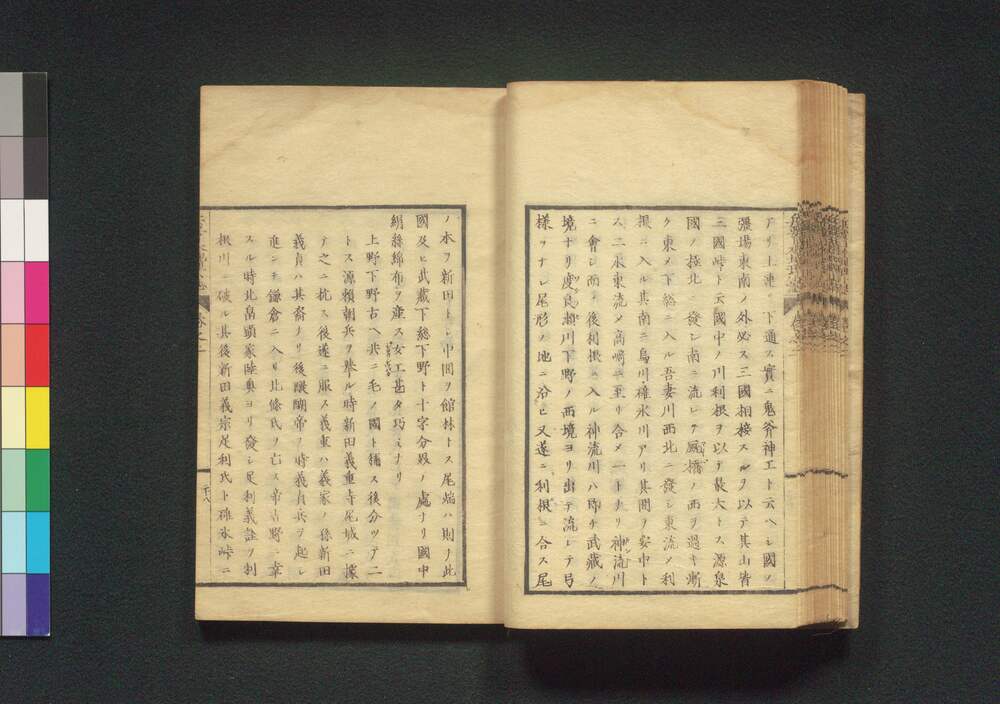 アリ上車ノ下通ス實ニ鬼斧神工ト云ヘシ國ノ
彊場東南ノ外必ス三國相接スルヲ以テ其山皆
三國峠ト云國中ノ川利根ヲ以テ最大トス源泉
國ノ極北ニ發シ南ニ流レテ厩橋ノ西ヲ過キ漸
ク東メ下総ニ入ル吾妻川西北ニ發シ東流メ利
根ニ入ル其南ニ烏川碓氷川アリ其間ノ安中ト
ス二水東流メ高崎ニ至リ合メ一トナリ神流川
ニ會シ而シ後利根ニ入ル神流川ハ時チ武藏ノ
境ナリ度良瀬川下野ノ西境ヨリ出テ流レテ弓
様ヲナシ尾形ノ地ニ沿ヒ又遂ニ利根ニ合ス尾
ノ本ヲ新田トシ中間ヲ館林トス尾端ハ則チ此
國及ヒ武藏下総下野ト十字分界ノ處ナリ國中
絹絲綿布ヲ産ス女工甚タ巧ミナリ
上野下野古ヘ共ニ毛ノ國ト稱ス後分ツテ二
トス源頼朝兵ヲ擧ル時新田義重寺尾城ニ據
テ之ニ抗ス後遂ニ服ス義重ハ義家ノ孫新田
義貞ハ其裔ナリ後醍醐帝ノ時義貞兵ヲ起シ
進ンテ鎌倉ニ入リ北條氏ヲ亡ス帝吉野ニ幸
スル時北畠顕家陸奥ヨリ發シ足利義詮ヲ利
根川ニ破ル其後新田義宗足利氏ト碓氷峠ニ